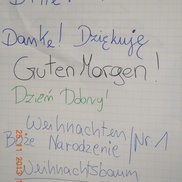 Bitte!
Danke! Dziękuję
Guten Morgen!
Dzień Dobry!
Weihnachten / Nr 1
Boże Narodzenie
Weihnachtsbaum